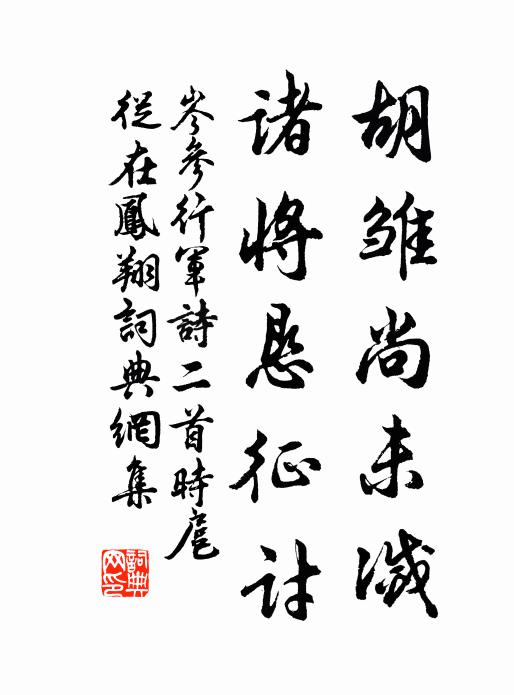 胡雛尚未滅
諸將恳征討
岑參行軍詩二首時扈
從在鳳翔詞典網集
詞典
网印